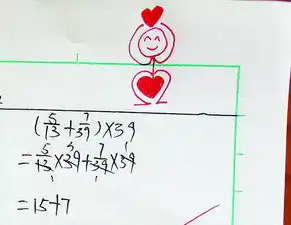 (5/13 + 7/39) × 39
= 5/13 × 39 + 7/39 × 39
= 15 + 7